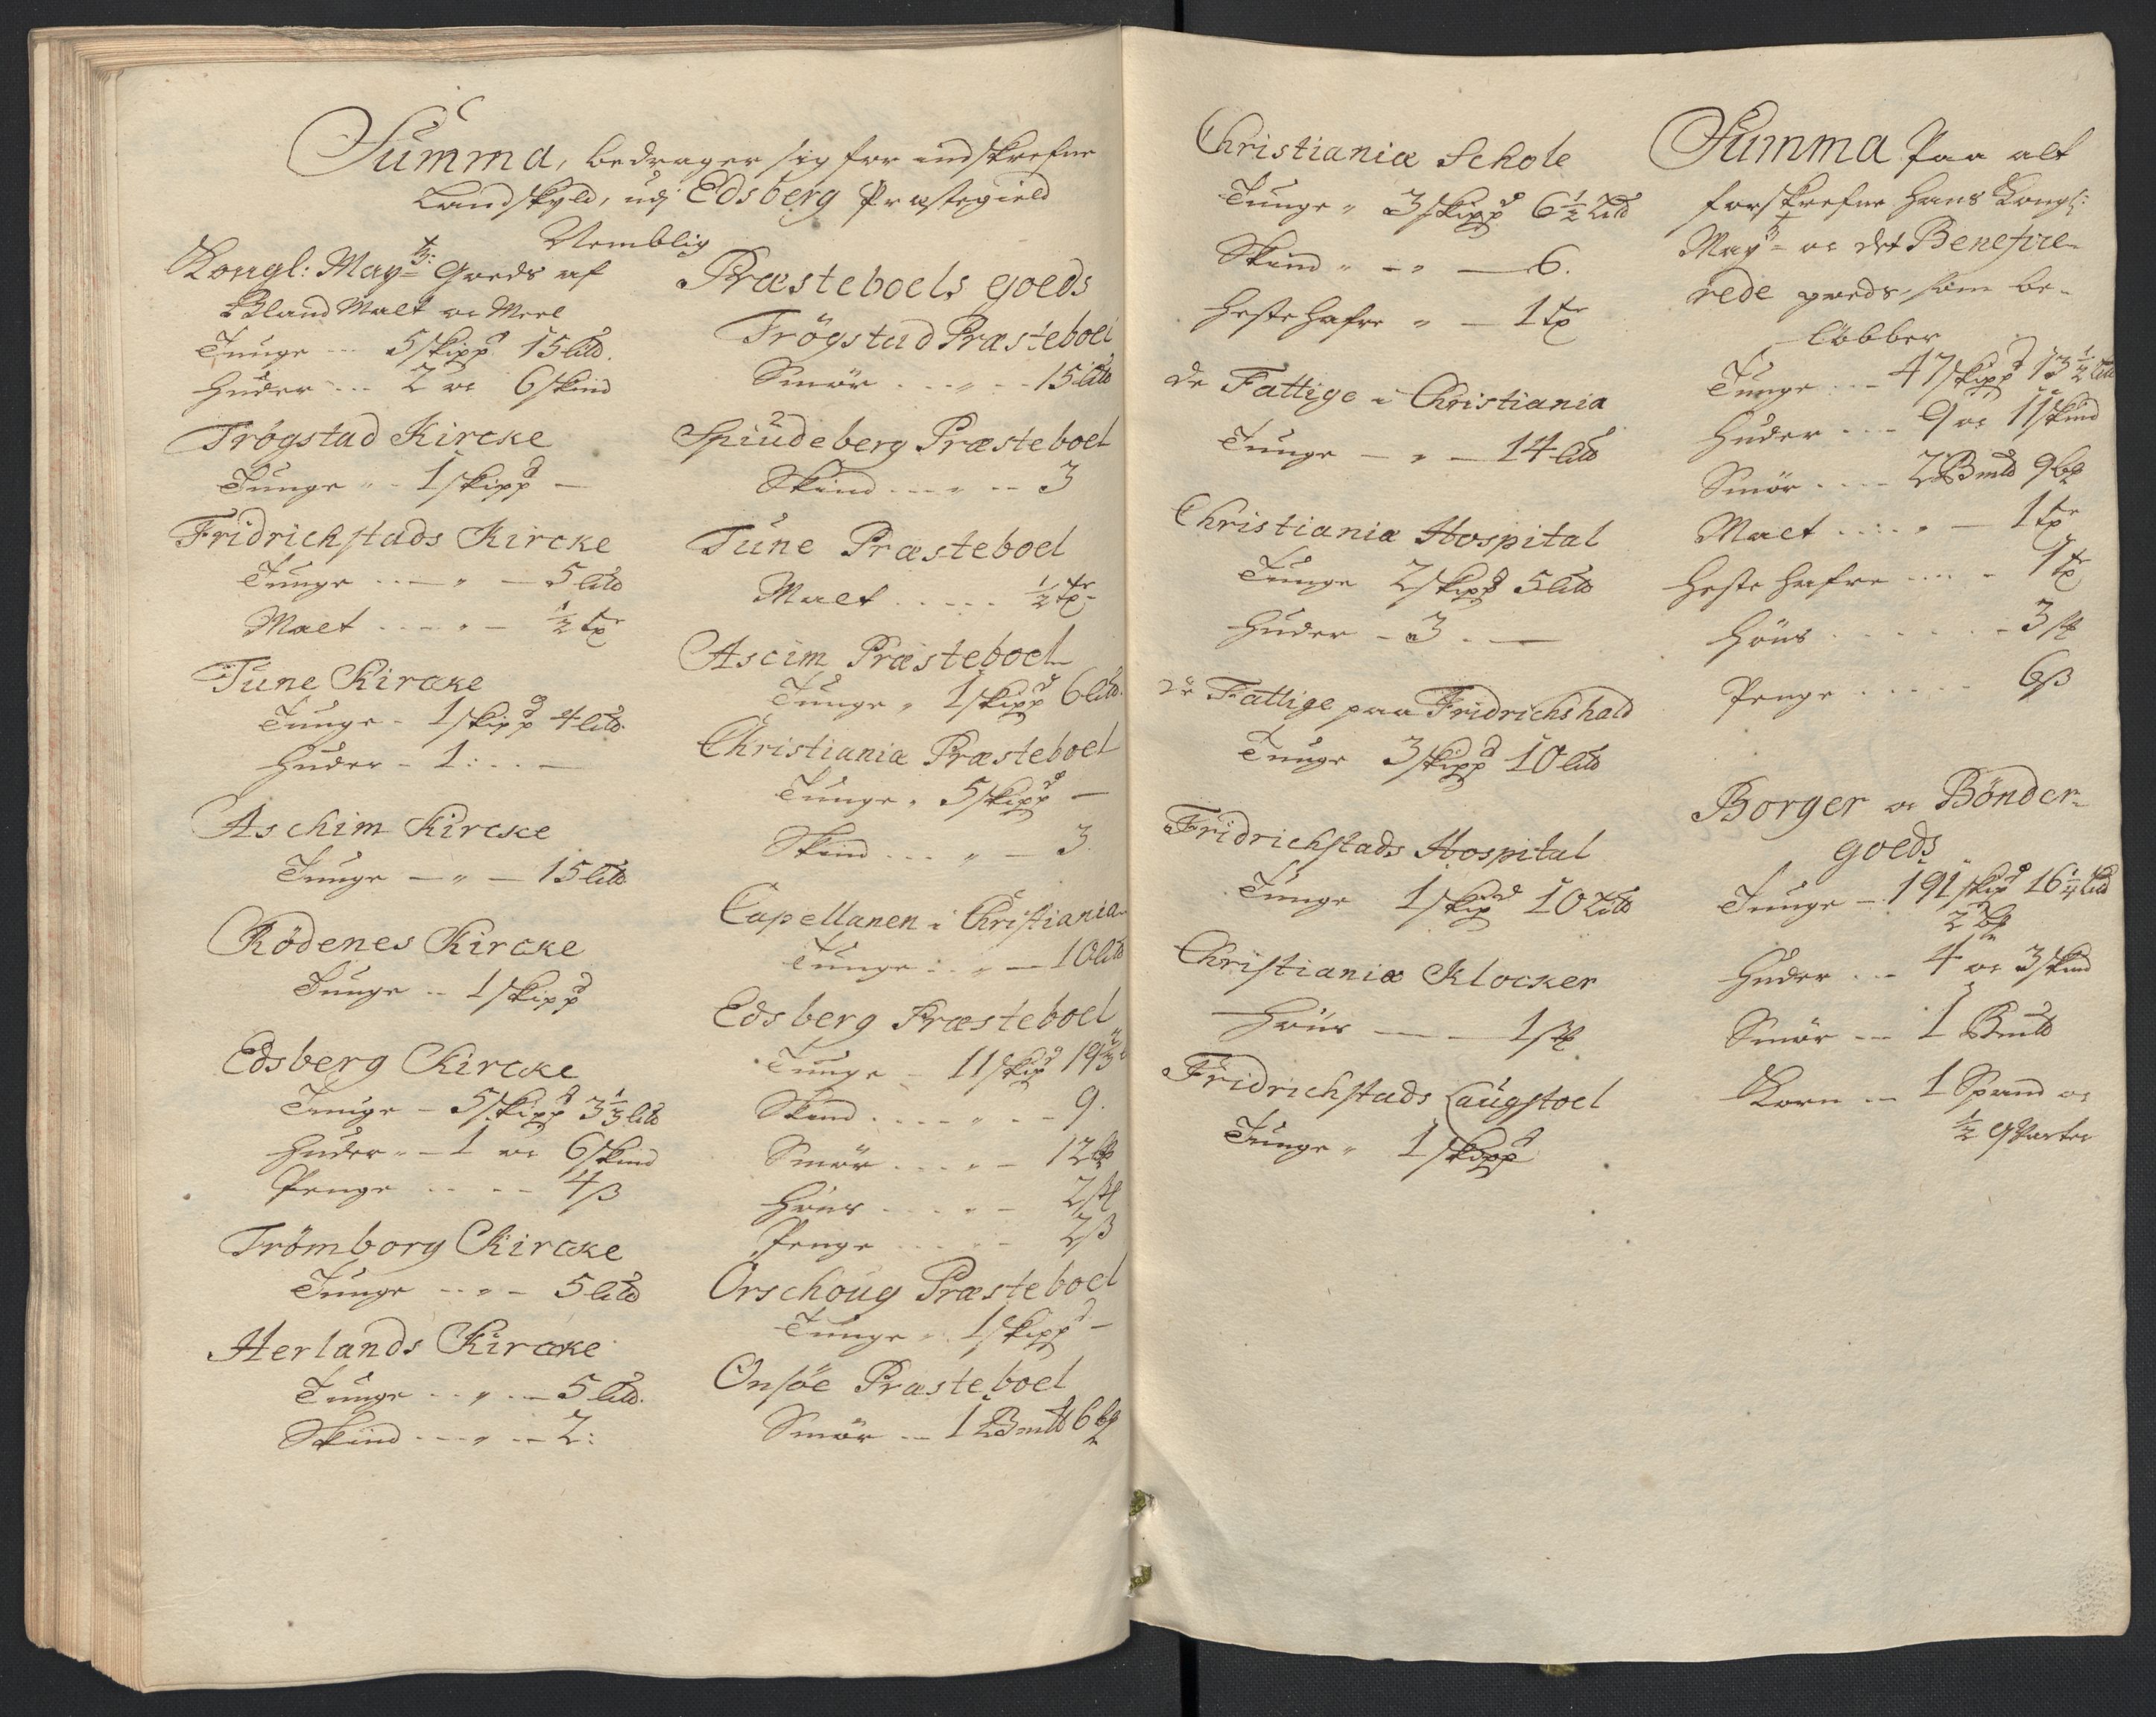 Summa, bedrager sig for indskrefne
Landskyld, udj Edsberg Præstegield
Nemblig
Kongl: Maytz: Goeds af
Bland Malt oc Meel
Tunge --- 5 skippd 15 lltd.
Huder --- 2 oc 6 skind
Trögstad Kircke
Tunge " - 1 skippd —
Fridrichstads Kircke
Tunge ..— " — 5 lltd
Malt ..— " — ½ tr
Tune Kircke
Tunge - 1 skippd 4 lltd.
Huder - 1:..—
Aschim Kircke
Tunge — " — 15 lltd
Rödenes Kircke
Tunge -- 1 skippd
Edsberg Kircke
Tunge - 5 skippd 3⅓ lltd
Huder - — 1 oc 6 skind
Penge ..... 4 β
Trömborg Kircke
Tunge -- " - 5 lltd
Herlands Kircke
Tunge .. " .— 5 lltd.
Skind --- " -- 2:
Præsteboels goeds
Trögstad Præsteboel
Smör - - " - - 15 lltd
Spiudeberg Præsteboel
Skind --- " -- 3
Tune Præsteboel
Malt ..... ½ tr -
Ascim Præsteboel
Tunge " 1 skippd 6 lltd.
Christiania Præsteboel
Tunge " 5 skippd —
Skind ... " — 3.
Capellanen i Christiania
Tunge .. " — 10 lltd
Edsberg Præsteboel
Tunge — 11 skipd 19⅓
Skind .... " - - 9.
Smör .... " - 12 bp
Höns ... " - 2 st
Penge ..... 2 β
Orschoug Præsteboel
Tunge " 1 skippd —
Onsöe Præsteboel
Smör -- 1 Bmltd 6 bp
Christianiæ Schole
Tunge " 3 skippd 6½ lltd
Skind " -- — 6.
Heste hafre " — 1 tr
de Fattige i Christiania
Tunge — " — 14 lltd
Christianiæ Hospital
Tunge 2 skippd 5 lltd
Huder - 3 . —
de Fattige paa Fridrichshald
Tunge 3 skippd 10 lltd
Fridrichstads Hospital
Tunge 1 skippd 10 lltd
Christianiæ Klocker
Höns — — 1 st
Fridrichstads Laugstoel
Tunge " 1 skippd
Summa paa alt
forskrefne Hans Kongl:
Maytz oc det Benefice-
rede goeds, som be-
löbber
Tunge ... 47 skippd 13½ lltd
Huder ... 9 oc 11 skind
Smör .... 2 Bmltd 9 bp
Malt ..:. " — 1 tr
Heste hafre .... 1 tr
Höns ...... 3 st
Penge ..... 6 β
Borger oc Bönder-
goeds
Tunge — 191 skipd 16¼ lltd
2 bp
Huder ... 4 oc 3 skind
Smör --- 1 Bmltd
Korn -- 1 Spand oc
½ qvarter